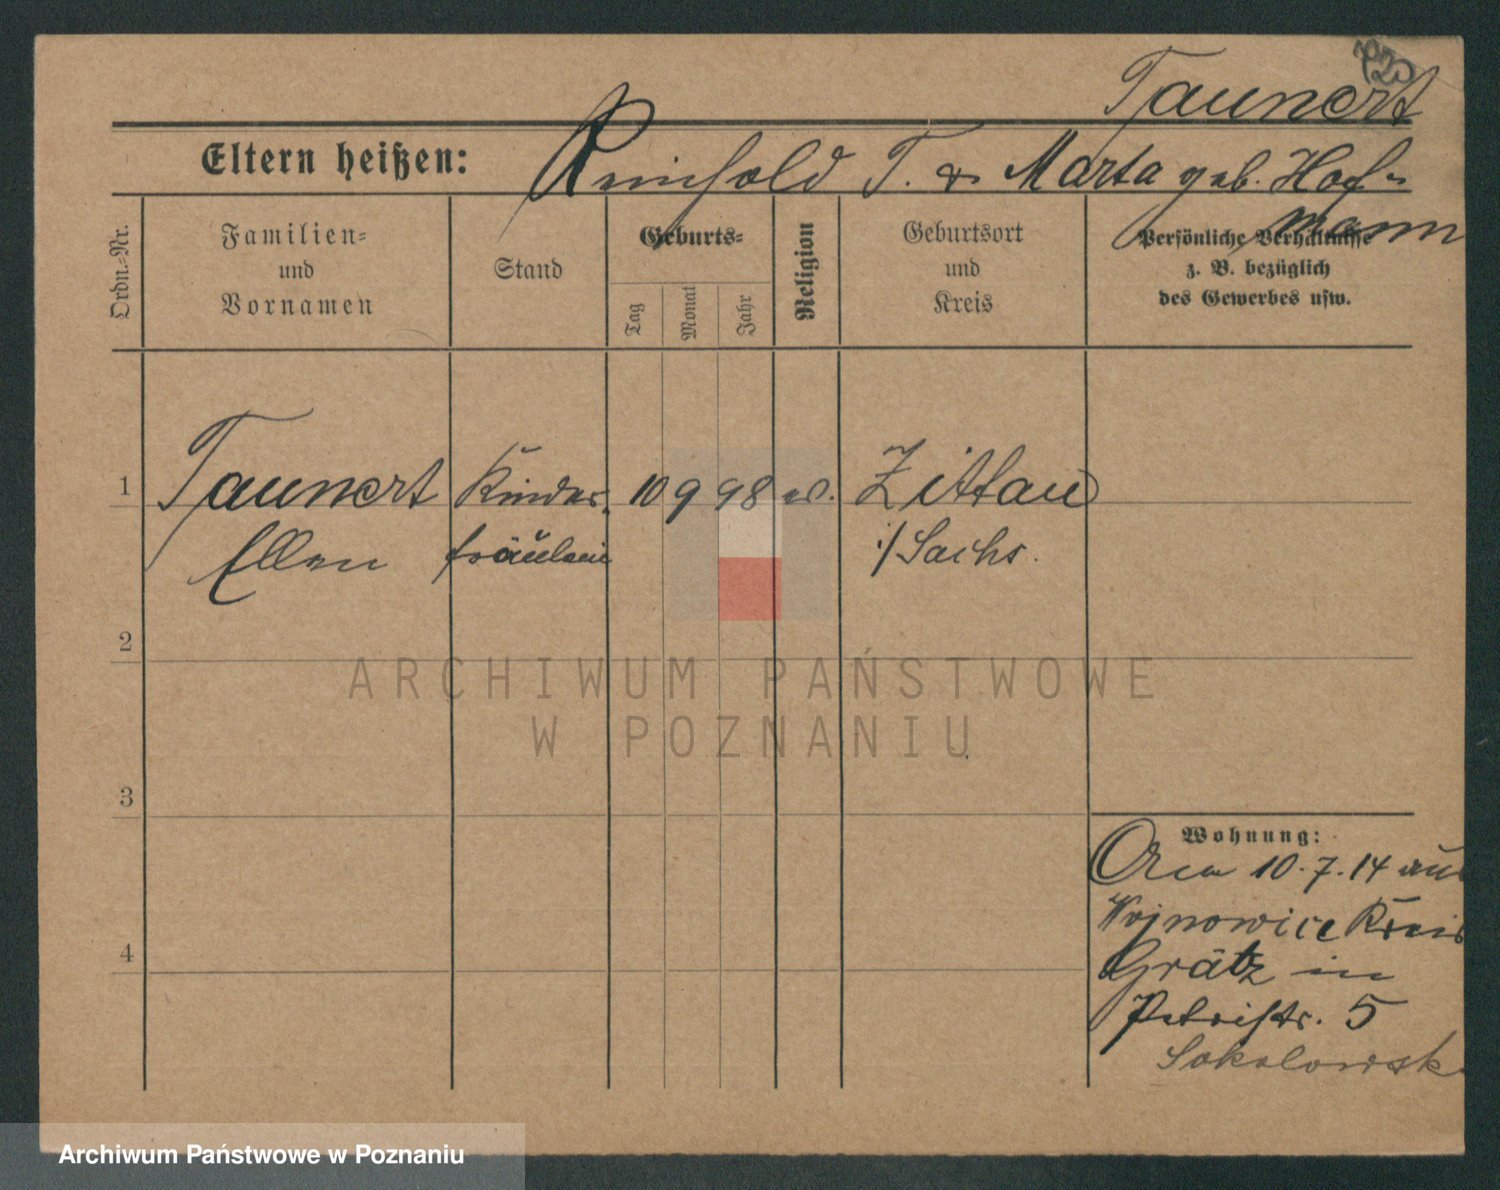 720
Taunert
Eltern heißen: Reinhold T. & Marta geb. Hof-
mann
Ordn.-Nr.
Familien-
und
Vornamen
Stand
Geburts-
Tag
Monat
Jahr
Religion
Geburtsort
und
Kreis
Persönliche Verhältnisse
z. B. bezüglich
des Gewerbes usw.
1 Taunert Kinder- 10 9 98 ev. Zittau
Ellen fräulein i/Sachs.
2
3
4
Wohnung:
10.7.14 aus
Wojnowice Kreis
Grätz in
Petristr. 5
Sokolowsk
ARCHIWUM PAŃSTWOWE
W POZNANIU
Archiwum Państwowe w Poznaniu